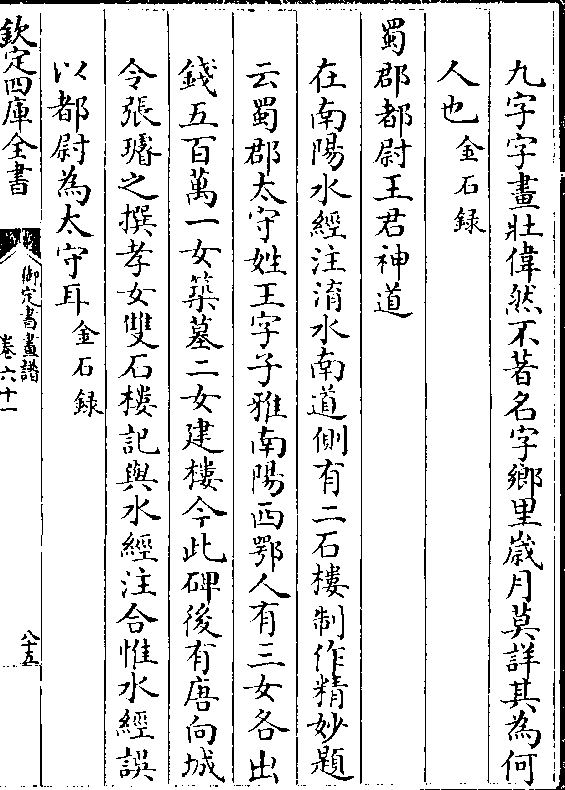 九字字畫壯偉然不著名字鄉里歲月莫詳其為何
人也金石録
蜀郡都尉王君神道
在南陽水經注淯水南道側有二石樓制作精妙題
云蜀郡太守姓王字子雅南陽西鄂人有三女各出
錢五百萬一女築墓二女建樓今此碑後有唐向城
令張璿之撰孝女雙石樓記與水經注合惟水經誤
以都尉為太守耳金石録
欽定四庫全書
御定書畫譜
卷六十一
八十五